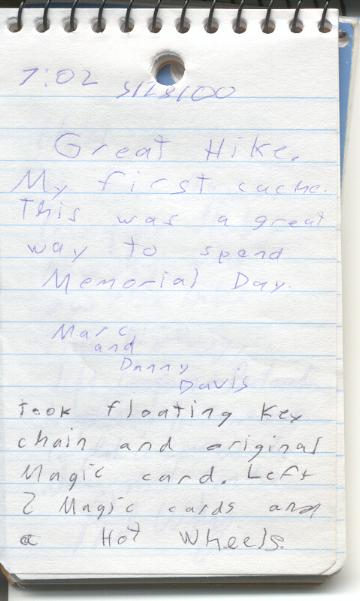 7:02
Great Hike.
My first cache.
This was a great
way to spend
Memorial Day.
Marc
and
Danny
Davis
Took floating key
chain and original
Magic card. Left
2 Magic cards and
a Hot Wheels.